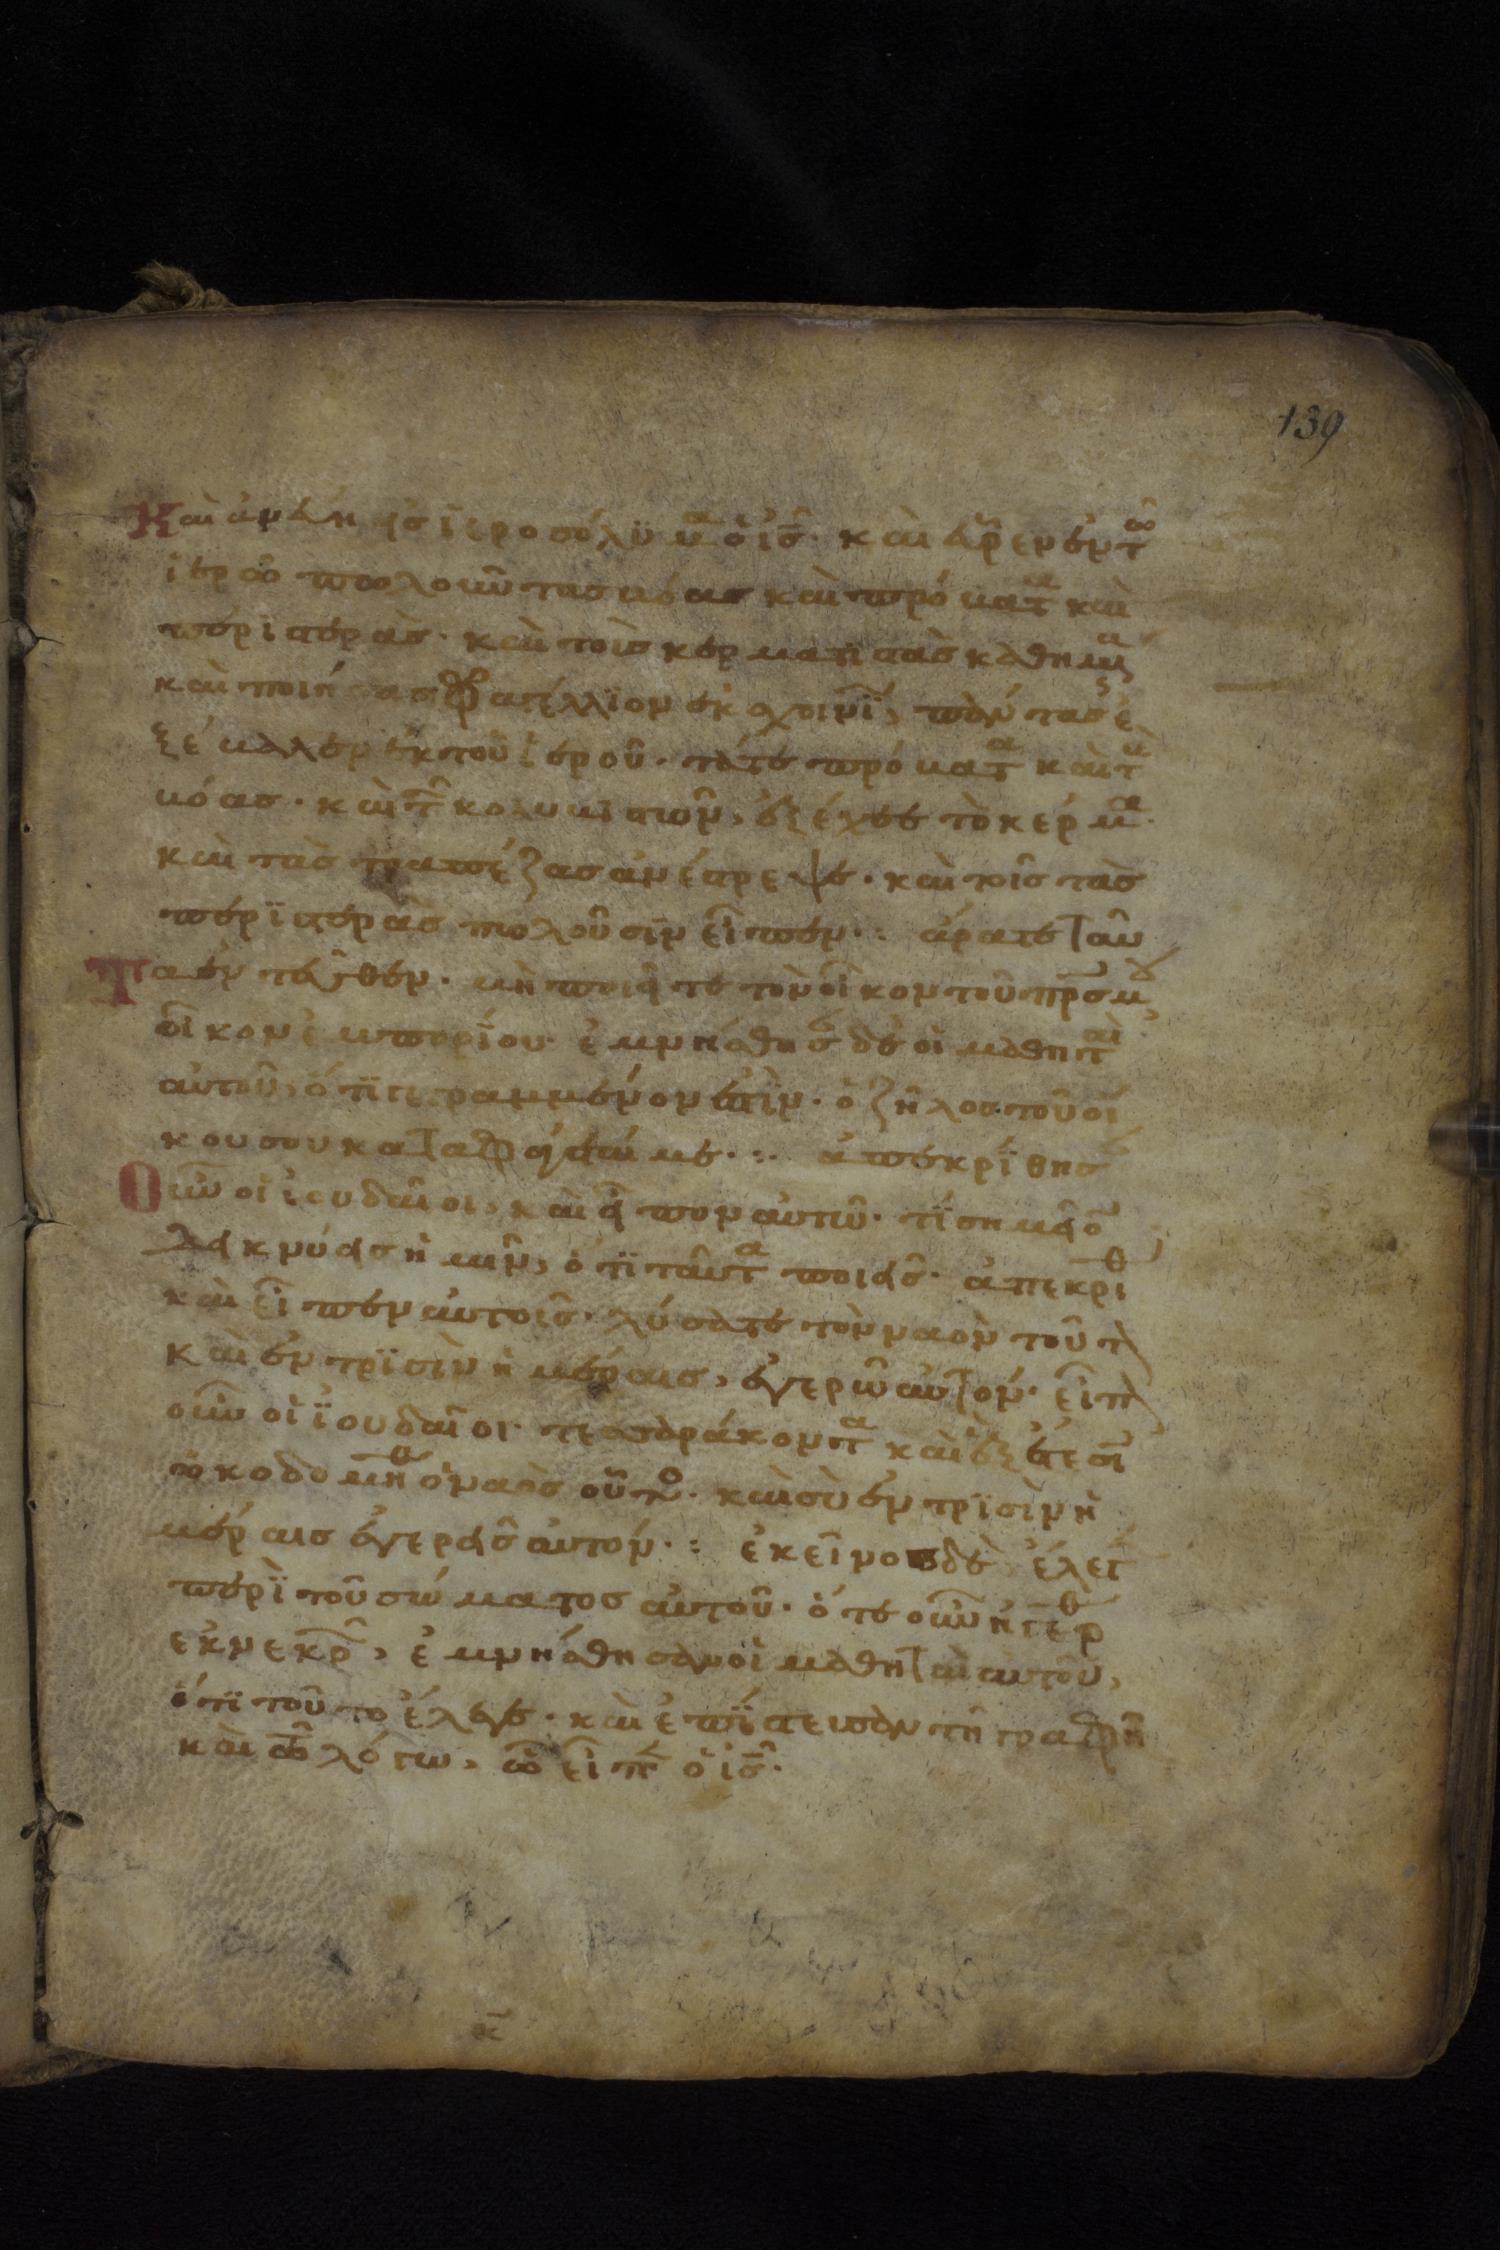 139
Καὶ ἀνέβη εἰς ἱεροσόλϋμα ὁ ις̅· καὶ εὗρεν ἐν τῶ
ἱερῶ πωλοῦντας βόας καὶ πρόβατ̅α καὶ
περιστεράς· καὶ τοὺς κερματϊστὰς καθημ̅ε
καὶ ποιήσας φραγέλλϊον ἐκ σχοινΐ, πάντας ἐ
ξέβαλεν ἐκ τοῦ ἱεροῦ· τά τε πρόβατ̅α καὶ τ̅
βόας· καὶ τ̅ κολυβϊστῶν, ἐξέχεε τὸ κέρμ̅α·
καὶ τὰς τραπέζας ἀνέστρεψε· καὶ τοῖς τὰς
περϊστερὰς πωλοῦσϊν εἶπεν·: ἄρατε ταῦ
Τα ἐντεῦθεν· μὴ ποιεῖτε τὸν οἶκον τοῦ πρ̅ς μ
οἶκον ἐμπορΐου· ἐμνήσθησ̅ δὲ οἱ μαθητ̅αὶ
αὐτοῦ, ὅτϊ γεγραμμένον ἐστὶν· ὁ ζῆλος τοῦ οἴ
κου σου καταφάγεταί με·:· ἀπεκρΐθησ̅
Οὖν οἱ ἰουδαῖοι, καὶ εἶπον αὐτῶ· τΐ σημεῖο̅
δεικνύεις ἡμῖν, ὅτϊ ταῦτ̅α ποιεῖς· ἀπεκρί̅θ
καὶ εἶπεν αὐτοῖς· λύσατε τὸν ναὸν τοῦτ̅
καὶ ἐν τρϊσὶν ἡμέραις, ἐγερῶ αὐτόν· εἶπ̅
οὖν οἱ ϊουδαῖοι· τεσσαράκοντ̅α καὶ ἓξ ἔτεσϊ
ὠκοδομή̅θ ὁ ναὸς οὗτο· καὶ σὺ ἐν τρϊσὶν ἡ
μέραις ἐγερεῖς αὐτόν·: ἐκεῖνος δὲ ἔλεγ̅
περὶ τοῦ σώματος αὐτοῦ· ὅτε οὖν ἠγέρ̅θ
ἐκ νεκρ̅, ἐμνήσθησαν οἱ μαθηταὶ αὐτοῦ,
ὅτϊ τοῦτο ἔλεγε· καὶ ἐπΐστευσαν τῆ γραφῆ
καὶ τῶ λόγω, ὧ εἶπ̅ ὁ ις̅·